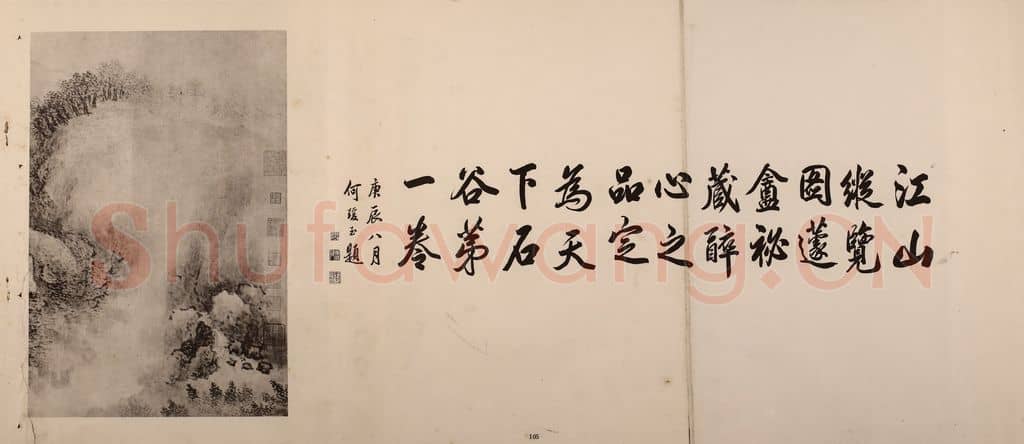 江山
縱覽
圖蘧
盦祕
藏醉
心之
品定
為天
下石
谷第
一卷
庚辰八月
何瑗玉題
Shufawang.CN
105